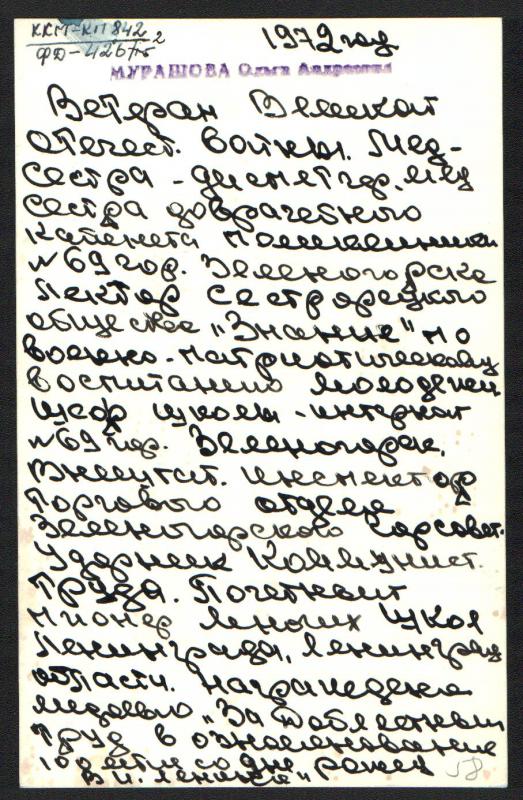 ККМ-КП 842
ФД-426/15 2
1972 год
МУРАШОВА Ольга Андреевна
Ветеран Великой
отечест. войны. Мед-
сестра - диспетчер, мед
сестра доврачебного
кабинета поликлиники
№69 гор. Зеленогорска
Лектор сестрорецкого
общества "Знание" по
военно-патриотическому
воспитанию молодежи
Шеф школы-интернат
№69 гор. Зеленогорск.
Внештат. инспектор
Торгового отдела
Зеленогорского Горсовет.
Ударник Коммунист.
труда. Почетный
пионер многих школ
Ленинграда, Ленинград
области. Награждена
медалью "За доблестный
труд в ознаменование
100 летие со дня рожд
В. И. Ленина"
58